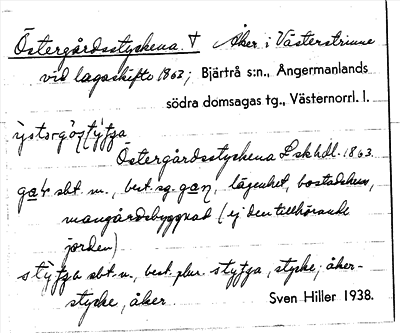 Östergårdsstyckena. † Åker i Västerstrinne
vid lagaskifte 1863; Bjärtrå s:n., Ångermanlands
södra domsagas tg., Västernorrl. l.
Östergårdsstyckena Lskhdl. 1863.
sbt. m., best. sg. lägenhet, bostadshus,
mangårdsbyggnad (ej den tillhörande
jorden)
sbt. n., best. plur. stycke, åker-
stycke, åker. Sven Hiller 1938.